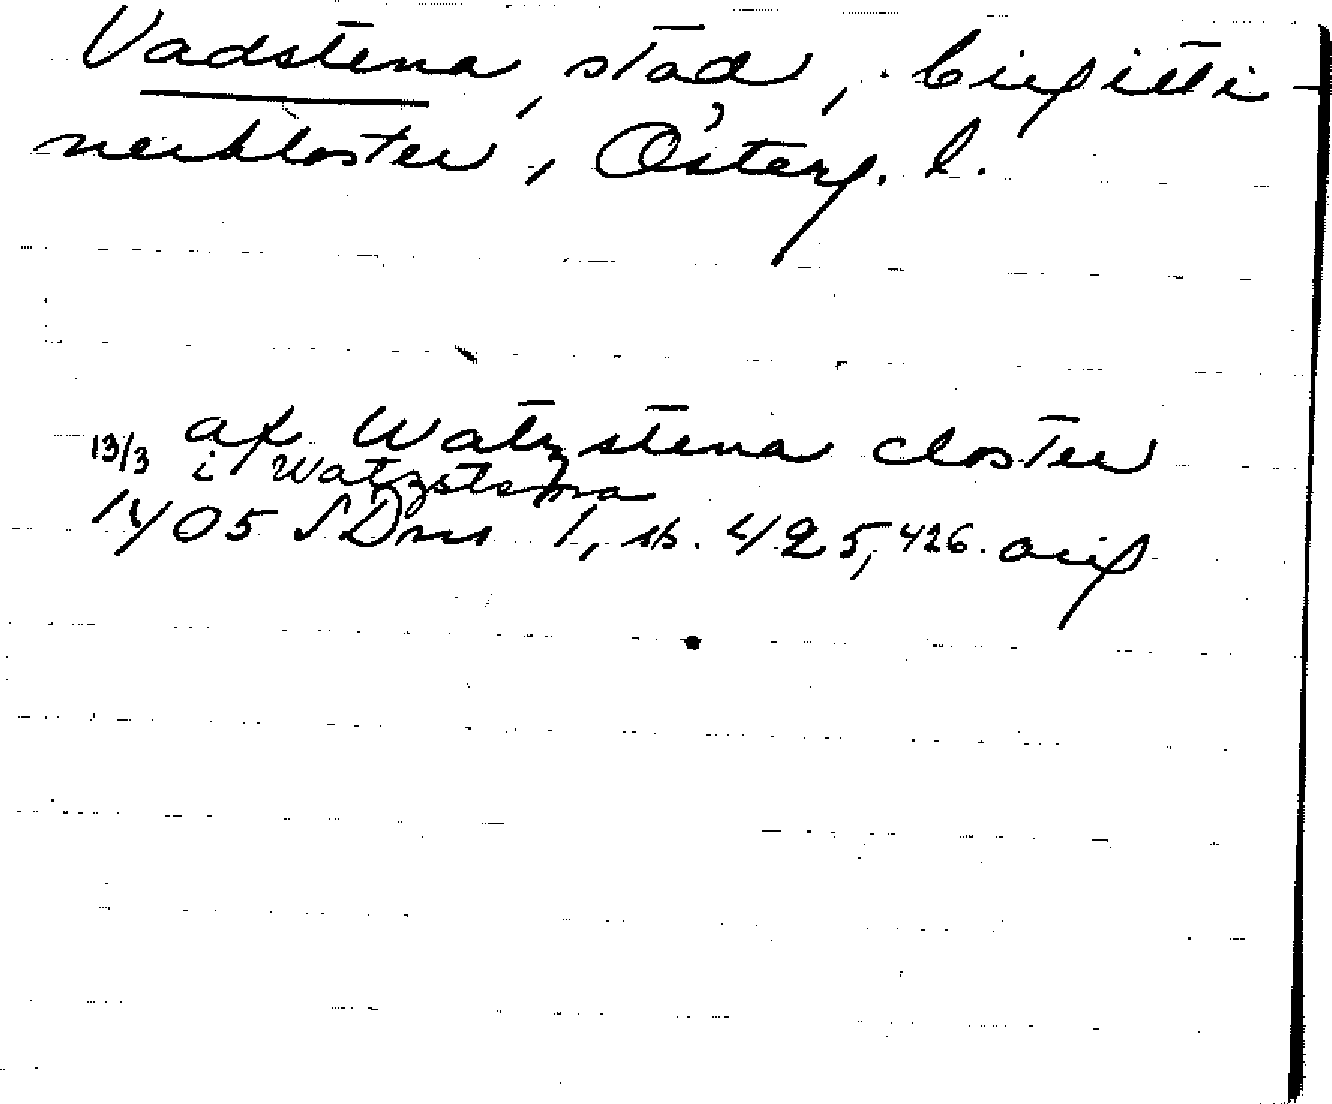 Vadstena, stad, birgitti-
nerkloster, Österg. l.
af Watzstena closter
13/3 i Watzstena
1405 SDns 1, s. 425, 426. orig